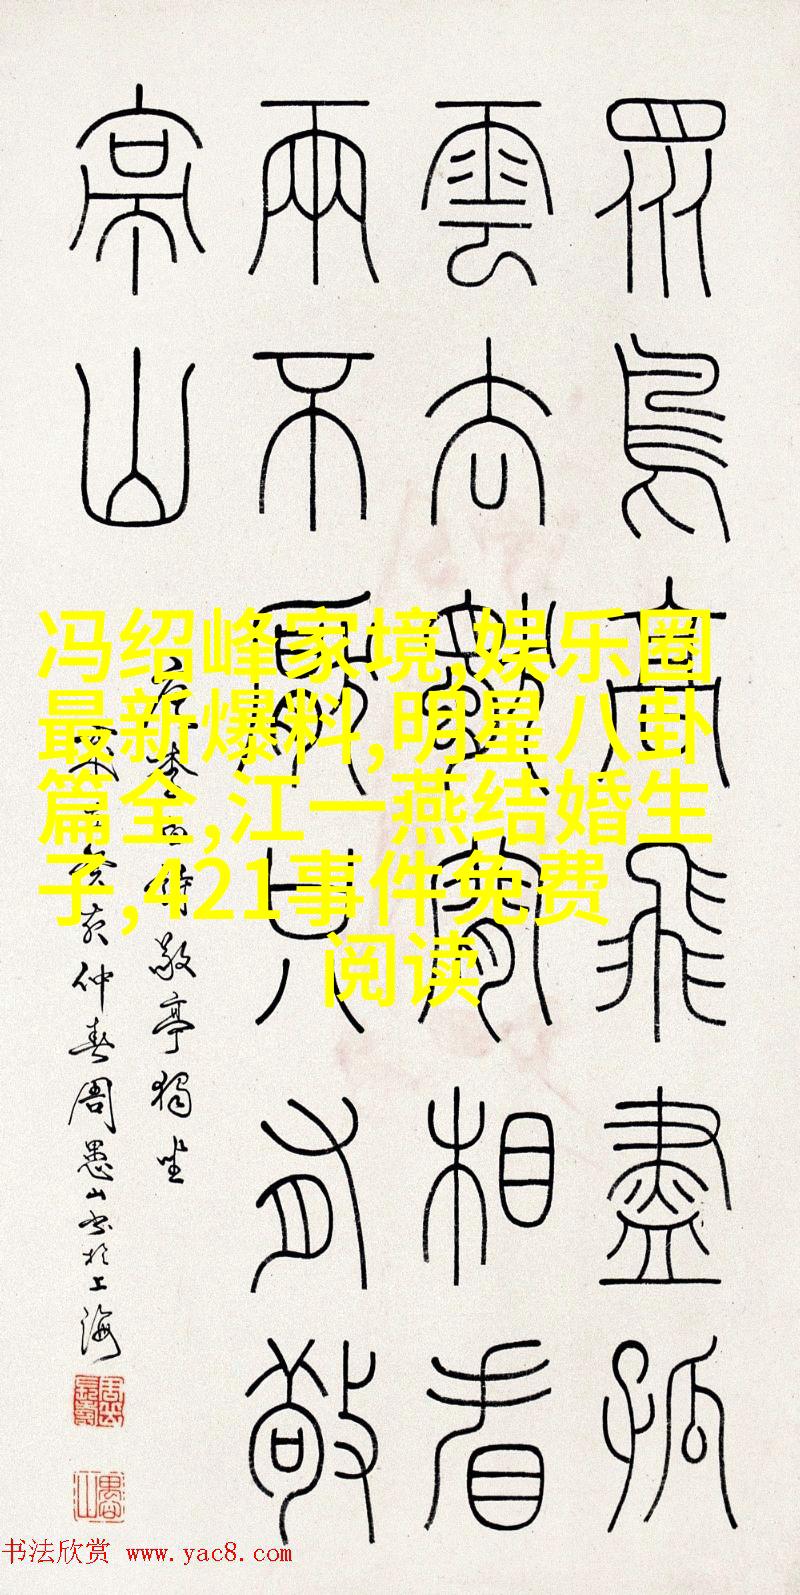 眾鳥高飛盡孤
雲去相看
兩不厭只有敬
亭山
李白詩敬亭獨坐
癸亥仲春周愚山书於上海
冯绍峰家境,娱乐圈
最新爆料,明星八卦
篇全,江一燕结婚生
子,421事件免费
阅读
书法欣赏 www.yac8.com